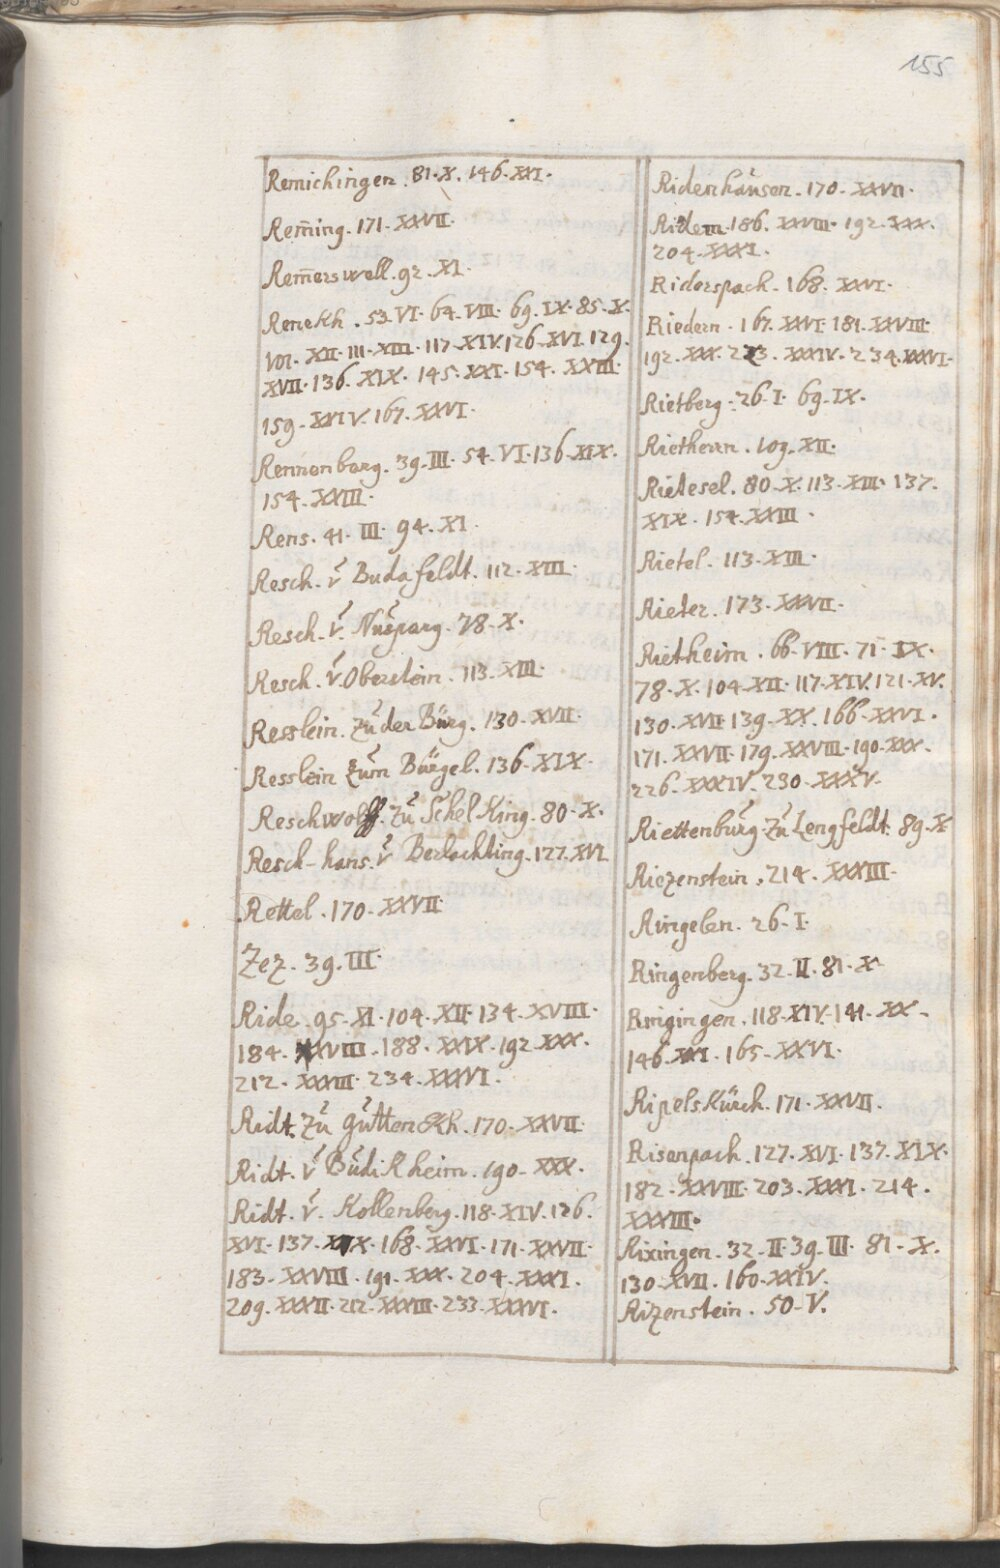 155
Remichingen. 81. X. 146. XXI.
Rem̄ing. 171. XXVII.
Rem̄erswell. 92. XI.
Renekh. 53. VI. 64. VIII. 69. IX. 85. X.
101. XII. 111. XIII. 117. XIV. 126. XVI. 129.
XVII. 136. XIX. 145. XXI. 154. XXIII.
159. XXIV. 167. XXVI.
Rennenberg. 39. III. 54. VI. 136. XIX.
154. XXIII.
Rens. 41. III. 94. XI.
Resch. v̆ Budafeldt. 112. XIII.
Resch. v̆. Nusparg. 78. X.
Resch. v̆ Oberstein. 113. XIII.
Resslein. zŭ der Bŭrg. 130. XVII.
Resslein zŭm Bŭrgel. 136. XIX.
Reschwolff. zŭ Schelking. 80. X.
Resch-hans. v̆ Berlachting. 127. XVI
Rettel. 170. XXVII.
Zez. 39. III.
Ride. 95. XI. 104. XII. 134. XVIII.
184. XXVIII. 188. XXIX. 192. XXX.
212. XXXIII. 234. XXXVI.
Ridt. zŭ gŭttenekh. 170. XXVII.
Ridt. v̆ Bŭdikheim. 190. XXX.
Ridt. v̆. Kollenberg. 118. XIV. 126.
XVI. 137. XIX. 168. XXVI. 171. XXVII.
183. XXVIII. 191. XXX. 204. XXXI.
209. XXXII. 212. XXXIII. 233. XXXVI.
Ridenhaŭsen. 170. XXVII.
Ridern. 186. XXVIII. 192. XXX.
204. XXXI.
Riderspach. 168. XXVI.
Riedern. 167. XXVI. 181. XXVIII.
192. XXX. 223. XXXIV. 234. XXXVI.
Rietberg. 26. I. 69. IX.
Riethern. 109. XII.
Rietesel. 80. X. 113. XIII. 137.
XIX. 154. XXIII.
Rietel. 113. XIII.
Rieter. 173. XXVII.
Rietheim. 66. VIII. 71. IX.
78. X. 104. XII. 117. XIV. 121. XV.
130. XVII. 139. XX. 166. XXVI.
171. XXVII. 179. XXVIII. 190. XXX.
226. XXXIV. 230. XXXV.
Riettenbŭrg. zŭ Lengfeldt. 89. X
Riezenstein. 214. XXXIII.
Ringelen. 26. I.
Ringenberg. 32. II. 81. X
Ringingen. 118. XIV. 141. XX.
146. XXI. 165. XXVI.
Ripelskŭrch. 171. XXVII.
Risenpach. 127. XVI. 137. XIX.
182. XXVIII. 203. XXXI. 214.
XXXIII.
Rixingen. 32. II. 39. III. 81. X.
130. XVII. 160. XXIV.
Rizenstein. 50. V.